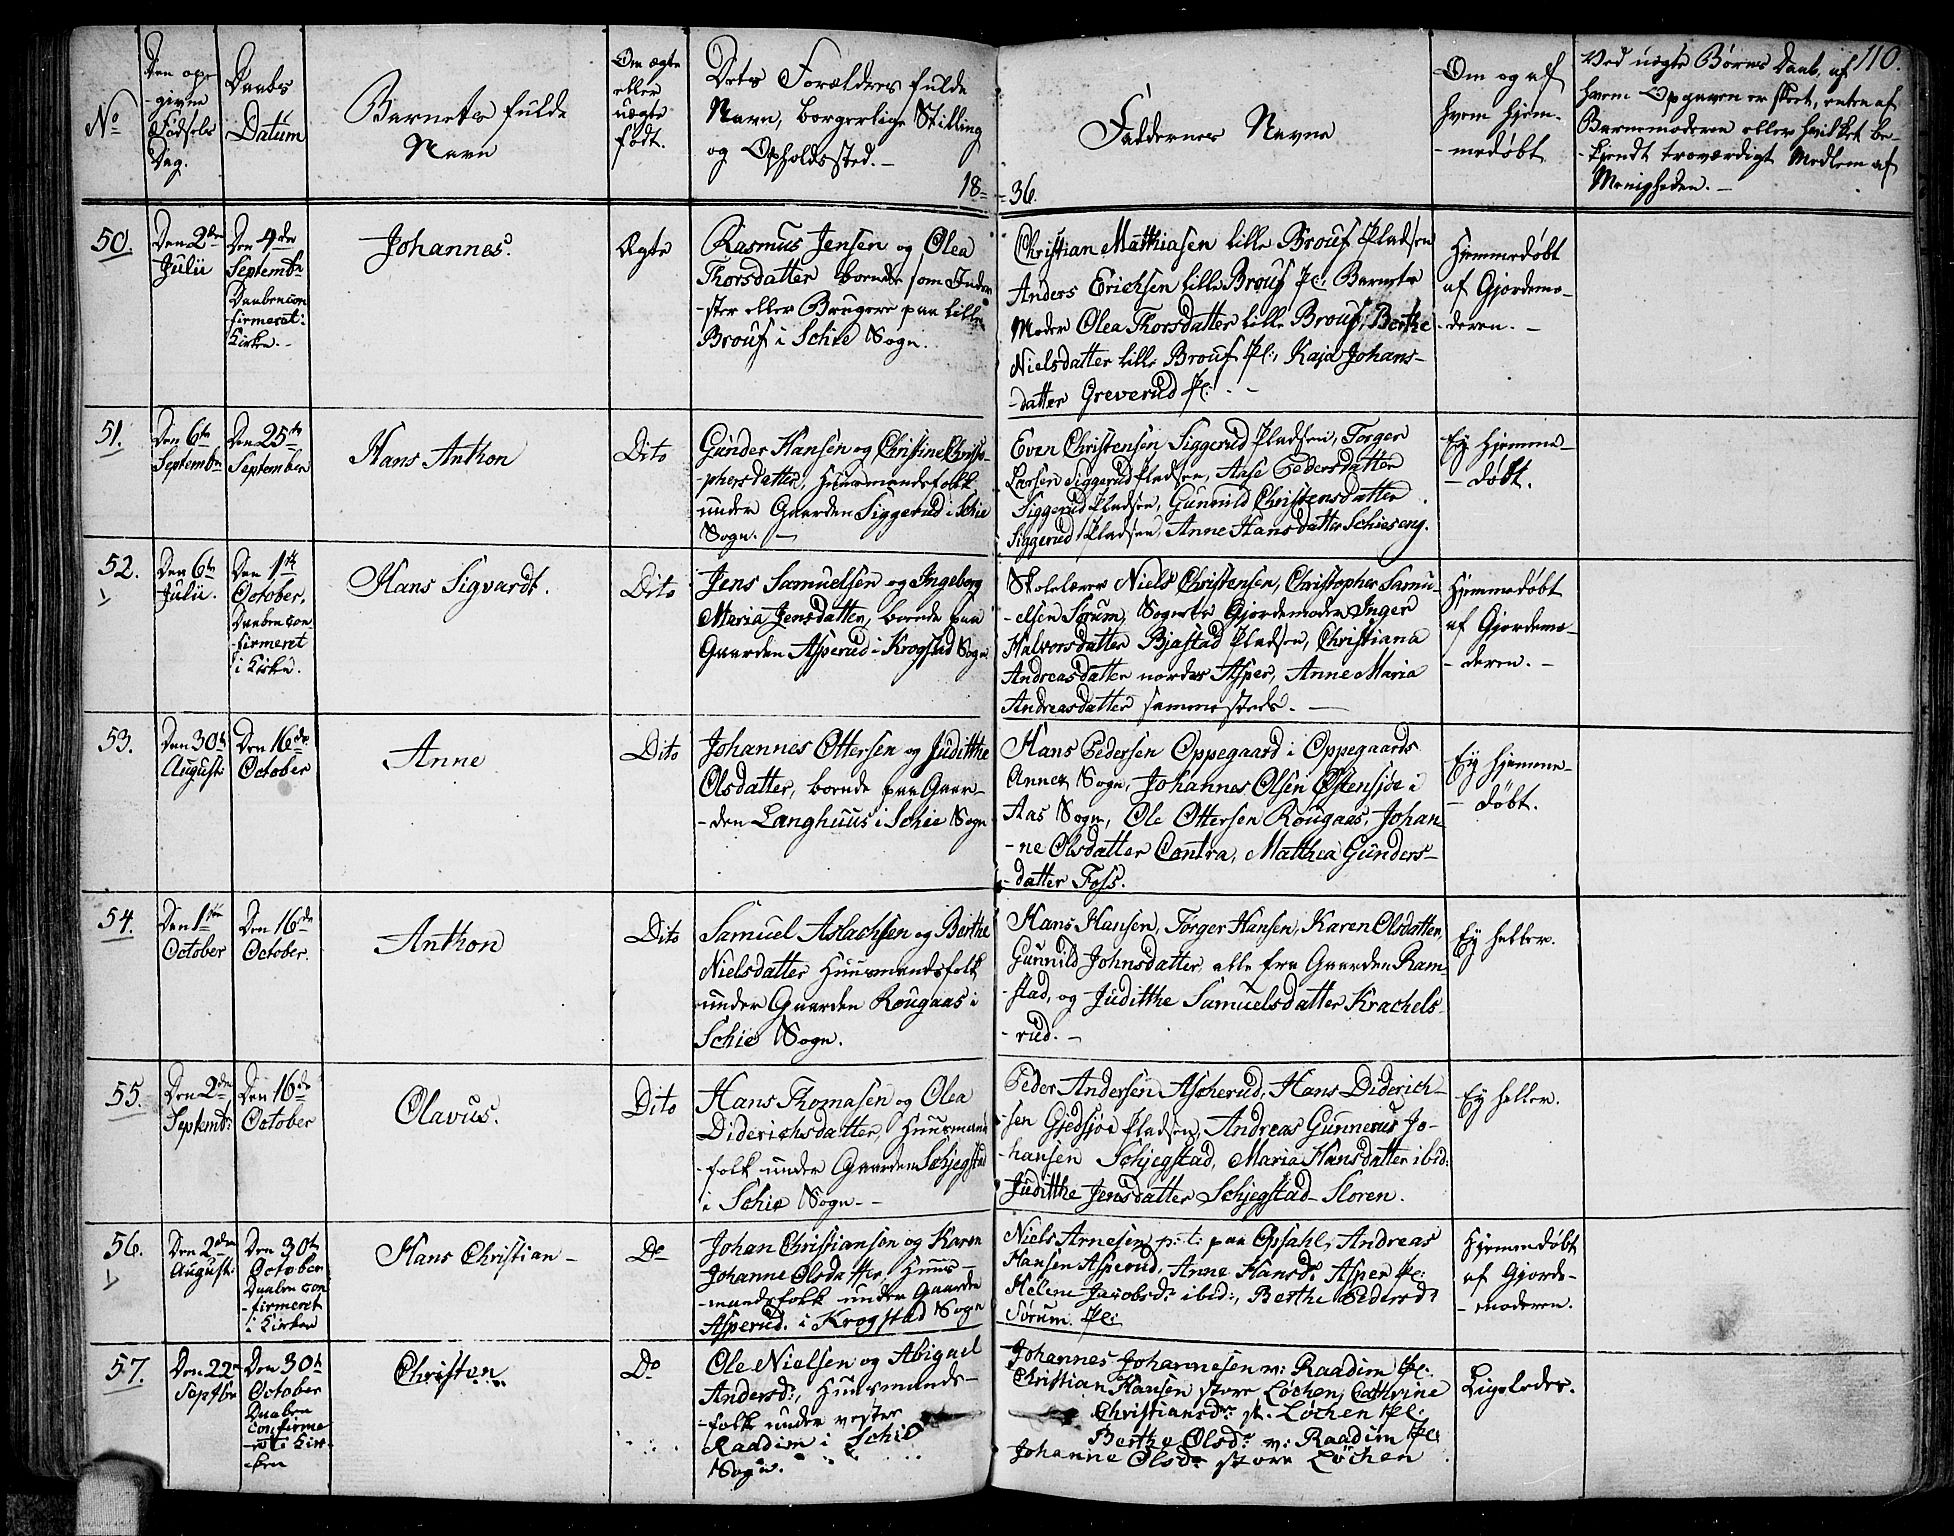 110.
No
Den op-
-givne
Fødsels
Dag.
Daabs
Datum
Barnets fulde
Navn
Om ægte
eller
uægte
født.
Dets Forældres fulde
Navn, borgerlige Stilling
og Opholdssted. -
18-
-36.
Faddernes Navne
Om og af
hvem hjem-
-medøbt
Ved uægte Børns Daab, af
hvem Opgaven er skeet, enten af
Barnemoderen eller hvilket be-
-kjendt troværdigt Medlem af
Menigheden. -
50.
Den 2den
Julii
Den 4de
Septembr
Daaben con
firmeret:
Kirke. -
Johannes.
Ægte
Rasmus Jensen og Olea
Thorsdatter boende som Inder-
-ster eller Brugere paa lille
Brouf i Schie Sogn.
Christian Mathiasen lille Brouf Pladsen
Anders Erichsen lille Brouf Pl: Barnets
Moder Olea Thorsdatter lille Brouf, Berthe
Nielsdatter lille Brouf Pl:, Kaja Johans-
-datter Greverud Pl: -
Hjemmedøbt
af Gjordemo-
-deren. -
51.
Den 6te
Septembr
Den 25de
September
Hans Anthon
Dito
Gunder Hansen og Christine Christo-
-phersdatter, Huusmandsfolk
under Gaarden Siggerud i Schie
Sogn. -
Even Christensen Siggerud Pladsen, Torger
Larsen Siggerud Pladsen, Aase Pedersdatter
Siggerud Pladsen, Gunnild Christensdatter
Siggerud Pladsen, Anne Hansdatter Schieseng.
Ey hjemme-
- døbt.
52.
Den 6te
Julii.
Den 1ste
October,
Daaben con-
-firmeret
i Kirke.
Hans Sigvardt.
Dito
Jens Samuelsen og Ingeborg
Maria Jensdatter, boende paa
Gaarden Asperud i Krogstad Sogn
Skolelærer Niels Christensen, Christopher Samu-
-elsen Sørum, Sognets Gjordemoder Inger
Halvorsdatter Bjastad Pladsen, Christiana
Andreasdatter nordre Asper, Anne Maria
Andreasdatter sammesteds. -
Hjemmedøbt
af Gjordemo-
-deren. -
53.
Den 30te
August
Den 16de
October
Anne
Dito
Johannes Ottersen og Juditthe
Olsdatter, boende paa Gaar-
-den Langhuus i Schie Sogn
Hans Pedersen Oppegaard i Oppegaards
Annex Sogn, Johannes Olsen Østensjøe i
Aas Sogn, Ole Ottersen Rougaas, Johan-
-ne Olsdatter Contra, Matthea Gunders-
-datter Foss.
Ey hjemme-
- døbt.
54.
Den 1ste
October
Den 16de
October.
Anthon
Dito
Samuel Aslachsen og Berthe
Nielsdatter Huusmandsfolk
under Gaarden Rougaas i
Schie Sogn.
Hans Hansen, Torger Hansen, Karen Olsdatter,
Gunnild Johnsdatter, alle fra Gaarden Ram-
-stad, og Juditthe Samuelsdatter Krachels-
-rud. -
Ey heller.
55.
Den 2den
Septembr:
Den 16de
October
Olavus.
Dito
Hans Thomasen og Olea
Diderichsdatter, Huusmands
-folk under Gaarden Schjegstad
i Schie Sogn. -
Peder Andersen Ascherud, Hans Diderich-
-sen Gjedsjøe Pladsen, Andreas Gunnerus Jo-
-hansen Schjegstad, Maria Hansdatter ibid:
Juditthe Jensdatter Schjegstad Sloren.
Ey heller.
56.
Den 2den
August:
Den 30te
October
Daaben con
-firmeret
i Kirken
Hans Christian -
Do
Johan Christiansen og Karen
Johanne Olsdatter, Huus-
-mandsfolk under Gaarden
Asperud i Krogstad Sogn
Niels Arnesen p: t: paa Opsahl, Andreas
Hansen Asperud, Anne Hansdr Asper Pl:
Helene Jacobsdr ibid:, Berthe Pedersdr
Sørum Pl:
Hjemmedøbt
af Gjorde-
-moderen.
57.
Den 22e
Septbr
Den 30te
October
Daaben
confirme
-ret i Kir-
-ken
Christen
Do
Ole Nielsen og Abigael
Andersd:, Huusmands-
-folk under vestre
Raadim i Schie
Sogn.
Johannes Johannesen v: Raadim Pl:
Christian Hansen store Løchen, Cathrine
Christiansdr st. Løchen Pl:
Berthe Olsdr v: Raadim Pl:
Johanne Olsdr store Løchen
Ligeledes.